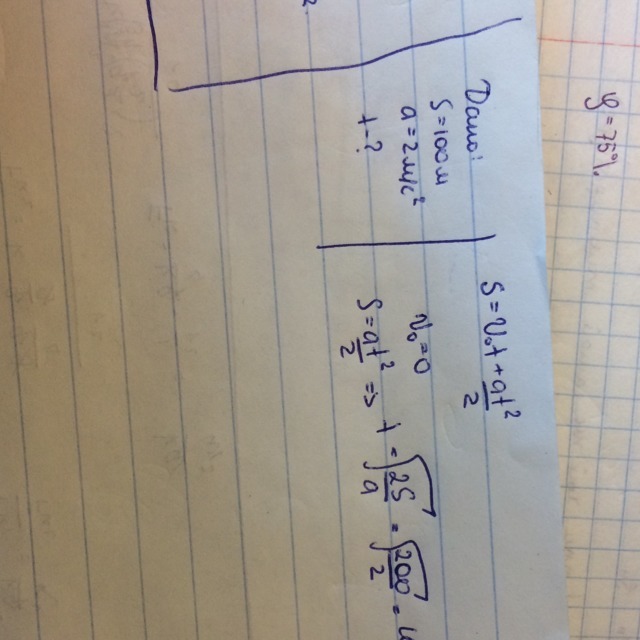 φ = 75%
Дано:
S = 100 м
a = 2 м/с²
t - ?
S = V₀t + at²/2
V₀ = 0
S = at²/2 => t = √(2S/a) = √(200/2) =